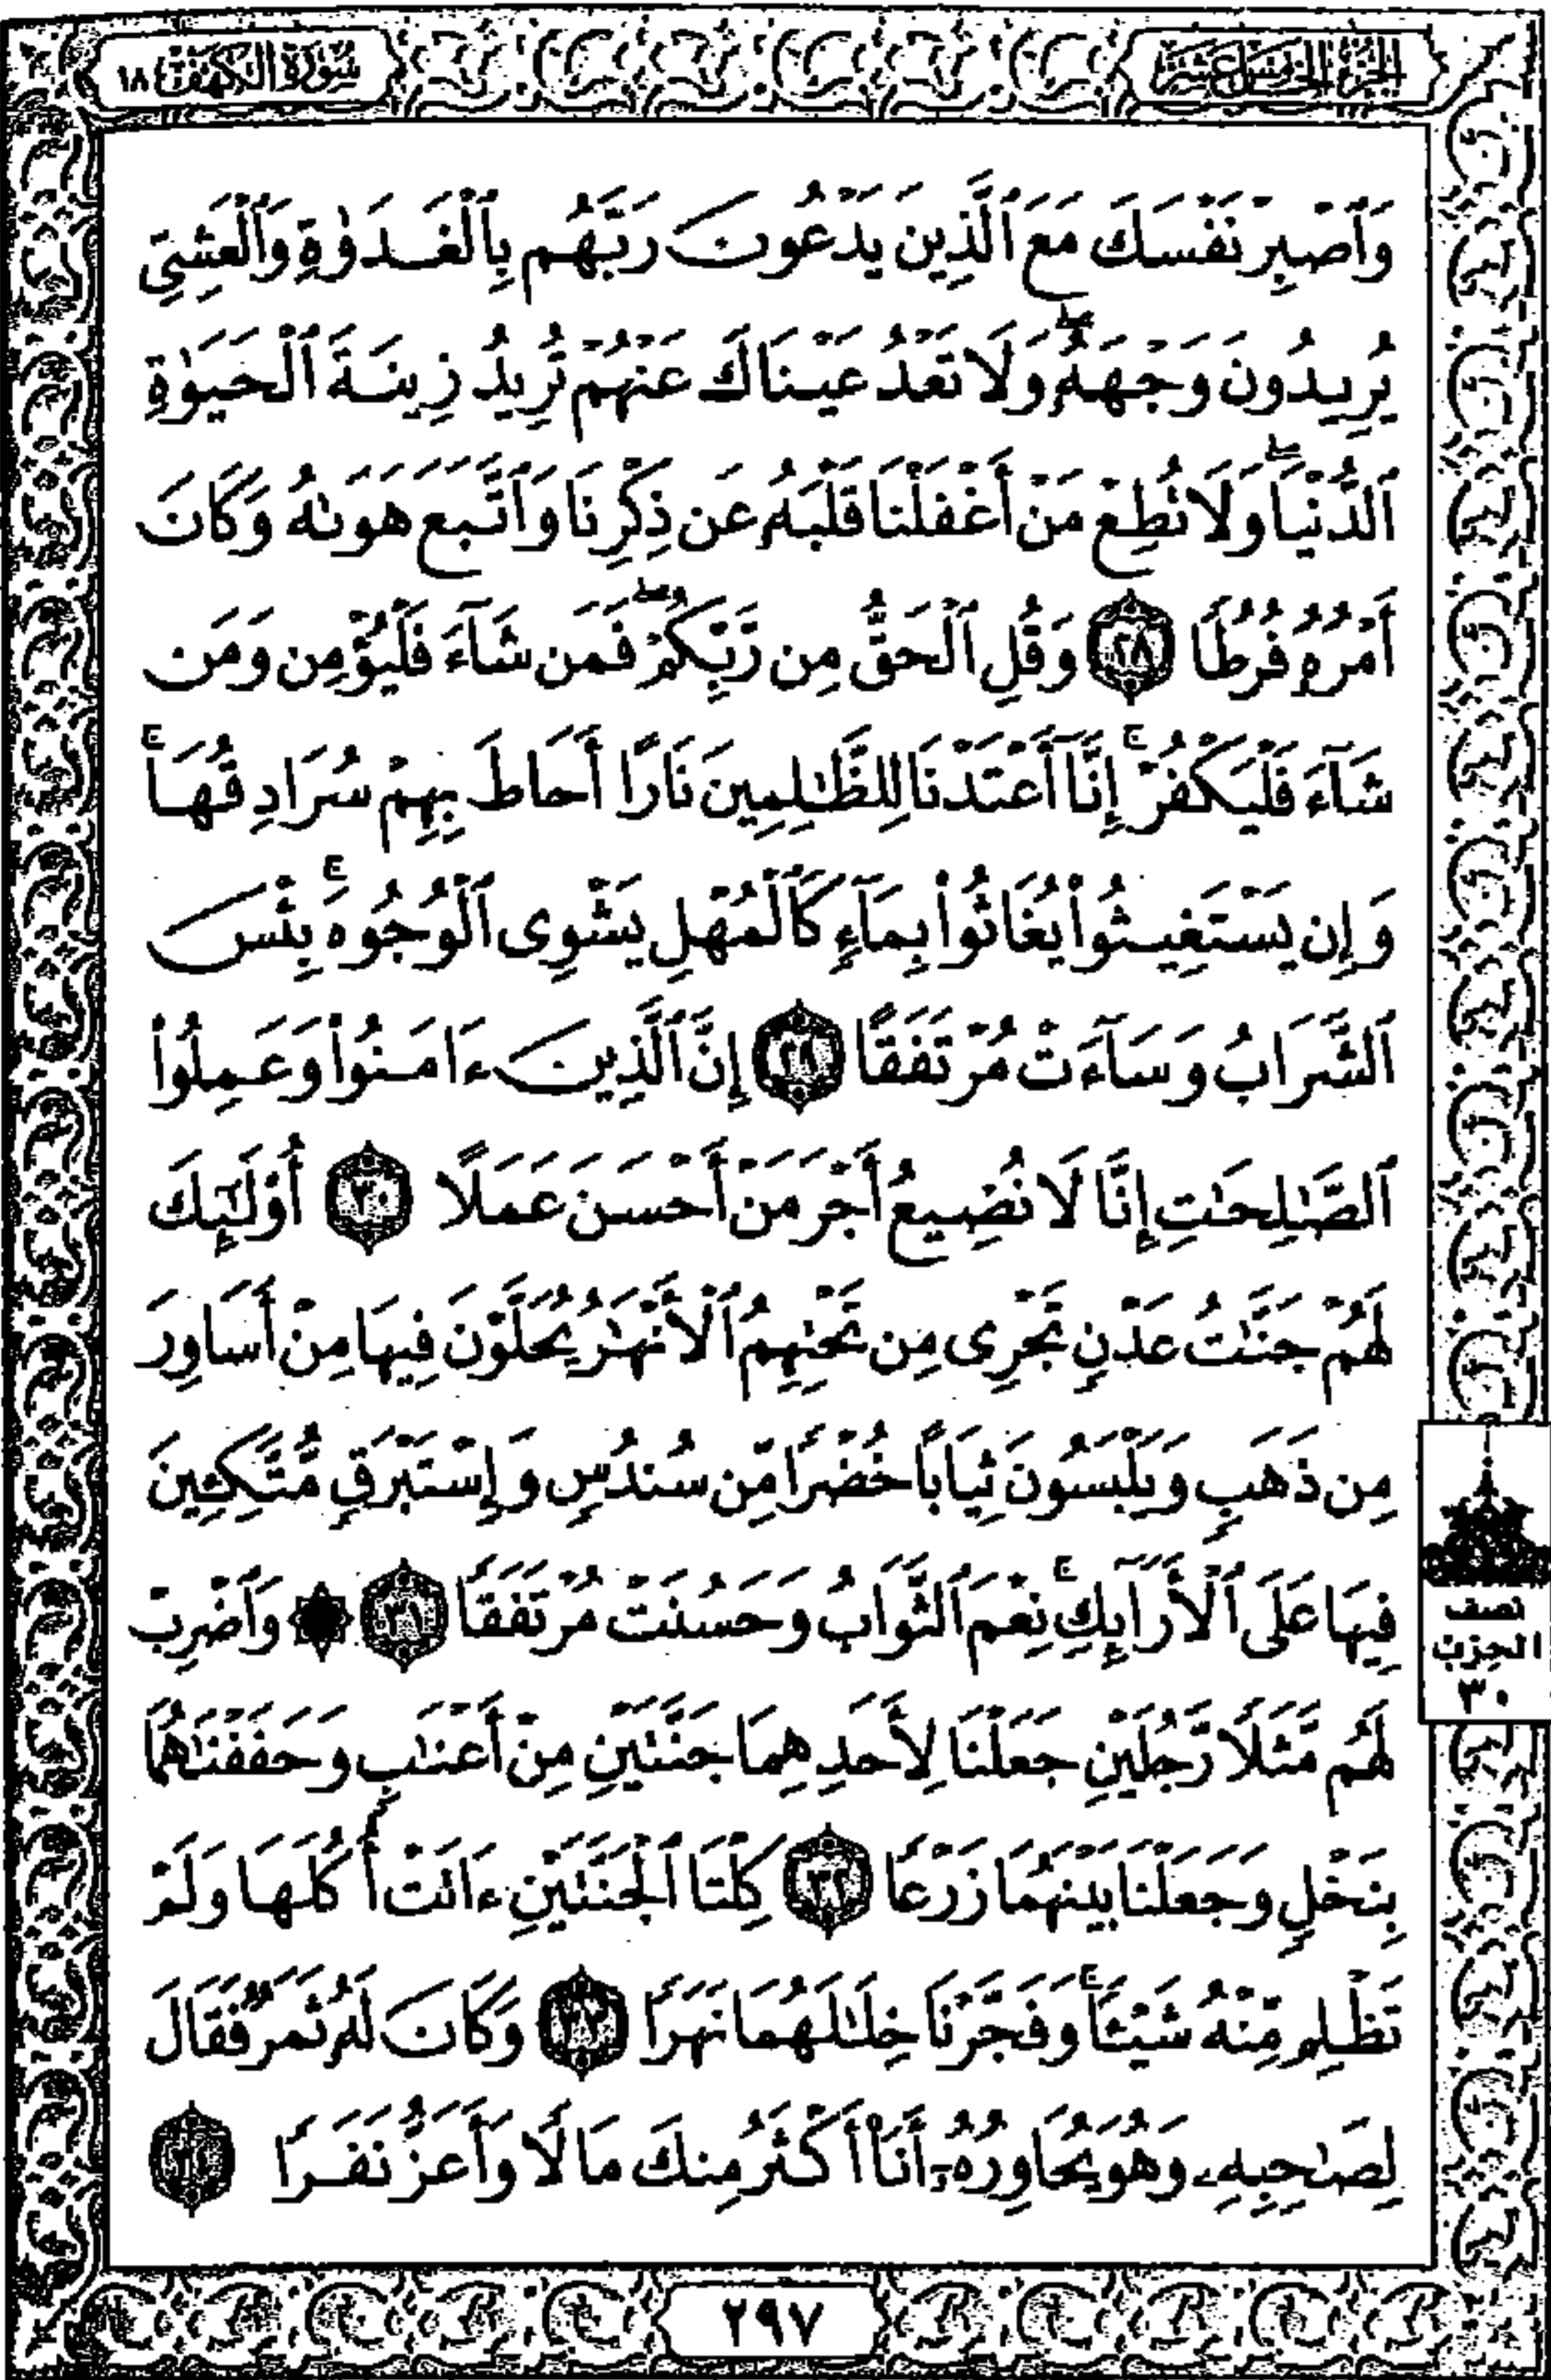 الجزء الخامس عشر
سورة الكهف ١٨
وَٱصْبِرْ نَفْسَكَ مَعَ ٱلَّذِينَ يَدْعُونَ رَبَّهُم بِٱلْغَدَوٰةِ وَٱلْعَشِىِّ
يُرِيدُونَ وَجْهَهُۥۖ وَلَا تَعْدُ عَيْنَاكَ عَنْهُمْ تُرِيدُ زِينَةَ ٱلْحَيَوٰةِ
ٱلدُّنْيَاۖ وَلَا تُطِعْ مَنْ أَغْفَلْنَا قَلْبَهُۥ عَن ذِكْرِنَا وَٱتَّبَعَ هَوَىٰهُ وَكَانَ
أَمْرُهُۥ فُرُطًا ٢٨ وَقُلِ ٱلْحَقُّ مِن رَّبِّكُمْۖ فَمَن شَآءَ فَلْيُؤْمِن وَمَن
شَآءَ فَلْيَكْفُرْۚ إِنَّآ أَعْتَدْنَا لِلظَّٰلِمِينَ نَارًا أَحَاطَ بِهِمْ سُرَادِقُهَاۚ
وَإِن يَسْتَغِيثُوا۟ يُغَاثُوا۟ بِمَآءٍ كَٱلْمُهْلِ يَشْوِى ٱلْوُجُوهَۚ بِئْسَ
ٱلشَّرَابُ وَسَآءَتْ مُرْتَفَقًا ٢٩ إِنَّ ٱلَّذِينَ ءَامَنُوا۟ وَعَمِلُوا۟
ٱلصَّٰلِحَٰتِ إِنَّا لَا نُضِيعُ أَجْرَ مَنْ أَحْسَنَ عَمَلًا ٣٠ أُو۟لَٰٓئِكَ
لَهُمْ جَنَّٰتُ عَدْنٍ تَجْرِى مِن تَحْتِهِمُ ٱلْأَنْهَٰرُ يُحَلَّوْنَ فِيهَا مِنْ أَسَاوِرَ
مِن ذَهَبٍ وَيَلْبَسُونَ ثِيَابًا خُضْرًا مِّن سُندُسٍ وَإِسْتَبْرَقٍ مُّتَّكِـِٔينَ
فِيهَا عَلَى ٱلْأَرَآئِكِۚ نِعْمَ ٱلثَّوَابُ وَحَسُنَتْ مُرْتَفَقًا ٣١ ۞ وَٱضْرِبْ
لَهُم مَّثَلًا رَّجُلَيْنِ جَعَلْنَا لِأَحَدِهِمَا جَنَّتَيْنِ مِنْ أَعْنَٰبٍ وَحَفَفْنَٰهُمَا
بِنَخْلٍ وَجَعَلْنَا بَيْنَهُمَا زَرْعًا ٣٢ كِلْتَا ٱلْجَنَّتَيْنِ ءَاتَتْ أُكُلَهَا وَلَمْ
تَظْلِم مِّنْهُ شَيْـًٔاۚ وَفَجَّرْنَا خِلَٰلَهُمَا نَهَرًا ٣٣ وَكَانَ لَهُۥ ثَمَرٌ فَقَالَ
لِصَٰحِبِهِۦ وَهُوَ يُحَاوِرُهُۥٓ أَنَا۠ أَكْثَرُ مِنكَ مَالًا وَأَعَزُّ نَفَرًا ٣٤
نصف
الحزب
٣٠
٢٩٧